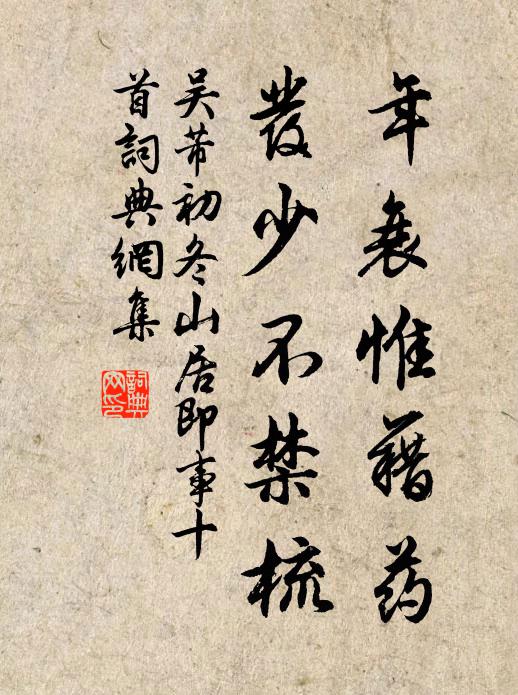 年衰惟藉药
發少不禁梳
吴芾初冬山居即事十
首詞典網集
詞典
网印